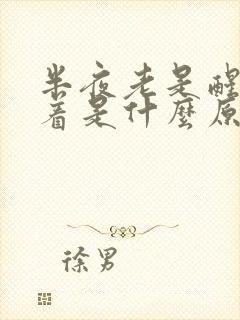 半夜老是醒
着是什麼原
徐男